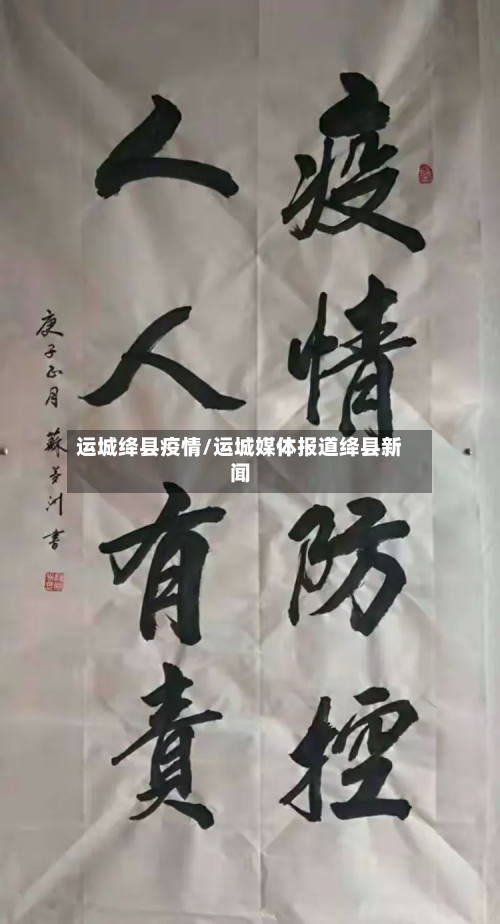 疫情防控
人人有責
庚子正月 蘇 洲 書
运城绛县疫情/运城媒体报道绛县新
闻